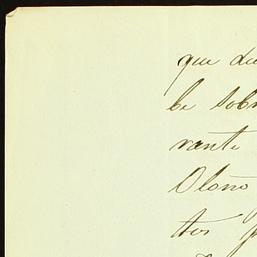 que du
be sobr
rante
Otoño
tos p